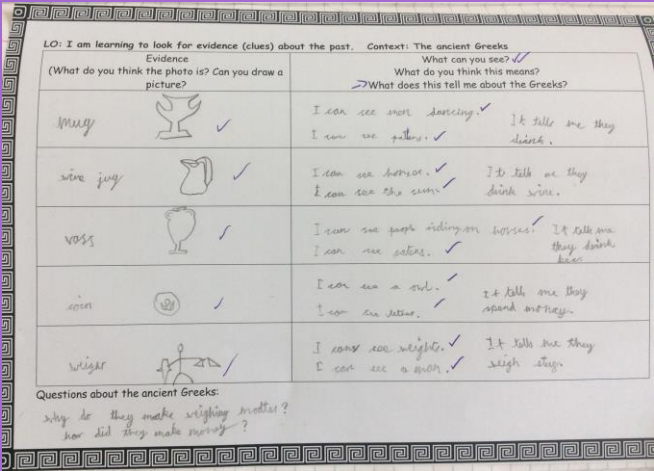 LO: I am learning to look for evidence (clues) about the past. Context: The ancient Greeks
Evidence
(What do you think the photo is? Can you draw a
picture?
What can you see?
What do you think this means?
What does this tell me about the Greeks?
mug
I can see men dancing.
I can see pattens.
It tells me they
drink.
wine jug
I can see horses.
I can see the
It tells me they
drink wine.
vass
I can see people riding on horses.
I can see patens.
It tells me
they drink
beer.
coin
I can see a owl.
I can see letters.
It tells me they
spend money.
I can see weights.
I can see a man.
It tells me they
weigh
Questions about the ancient Greeks:
why do they make weighing
how did they make money?